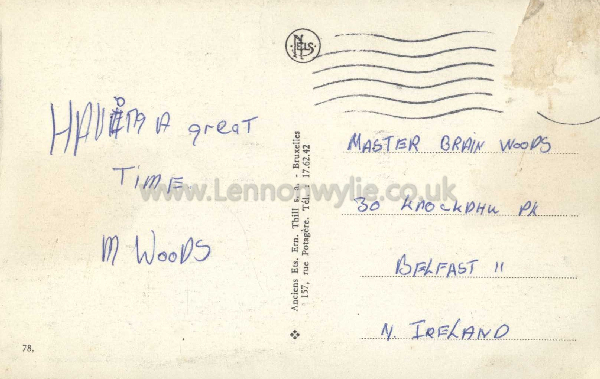 HAVING A great
TIME
M WOODS
NELS
Anciens Ets. Ern. Thill s. a. - Bruxelles
157, rue Potagère. Tél. : 17.62.42
MASTER BRAIN WOODS
30 KNOCKDHU PK
BELFAST 11
N. IRELAND
78,
www.Lennonwylie.co.uk